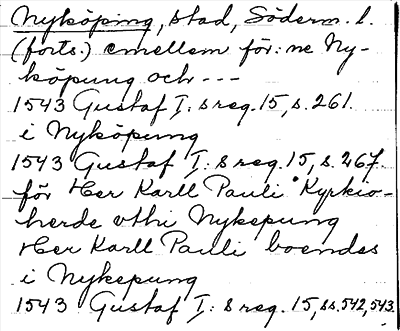 Nyköping, stad, Söderm. l.
(forts.) emellem för:ne Ny-
köpung och ---
1543 Gustaf I:s reg. 15, s. 261.
i Nyköpung
1543 Gustaf I:s reg. 15, s. 267.
för Her Karll Pauli Kyrkio-
herde vthi Nykepung
Her Karll Pauli boendes
i Nykepung
1543 Gustaf I:s reg. 15, ss. 542, 543.